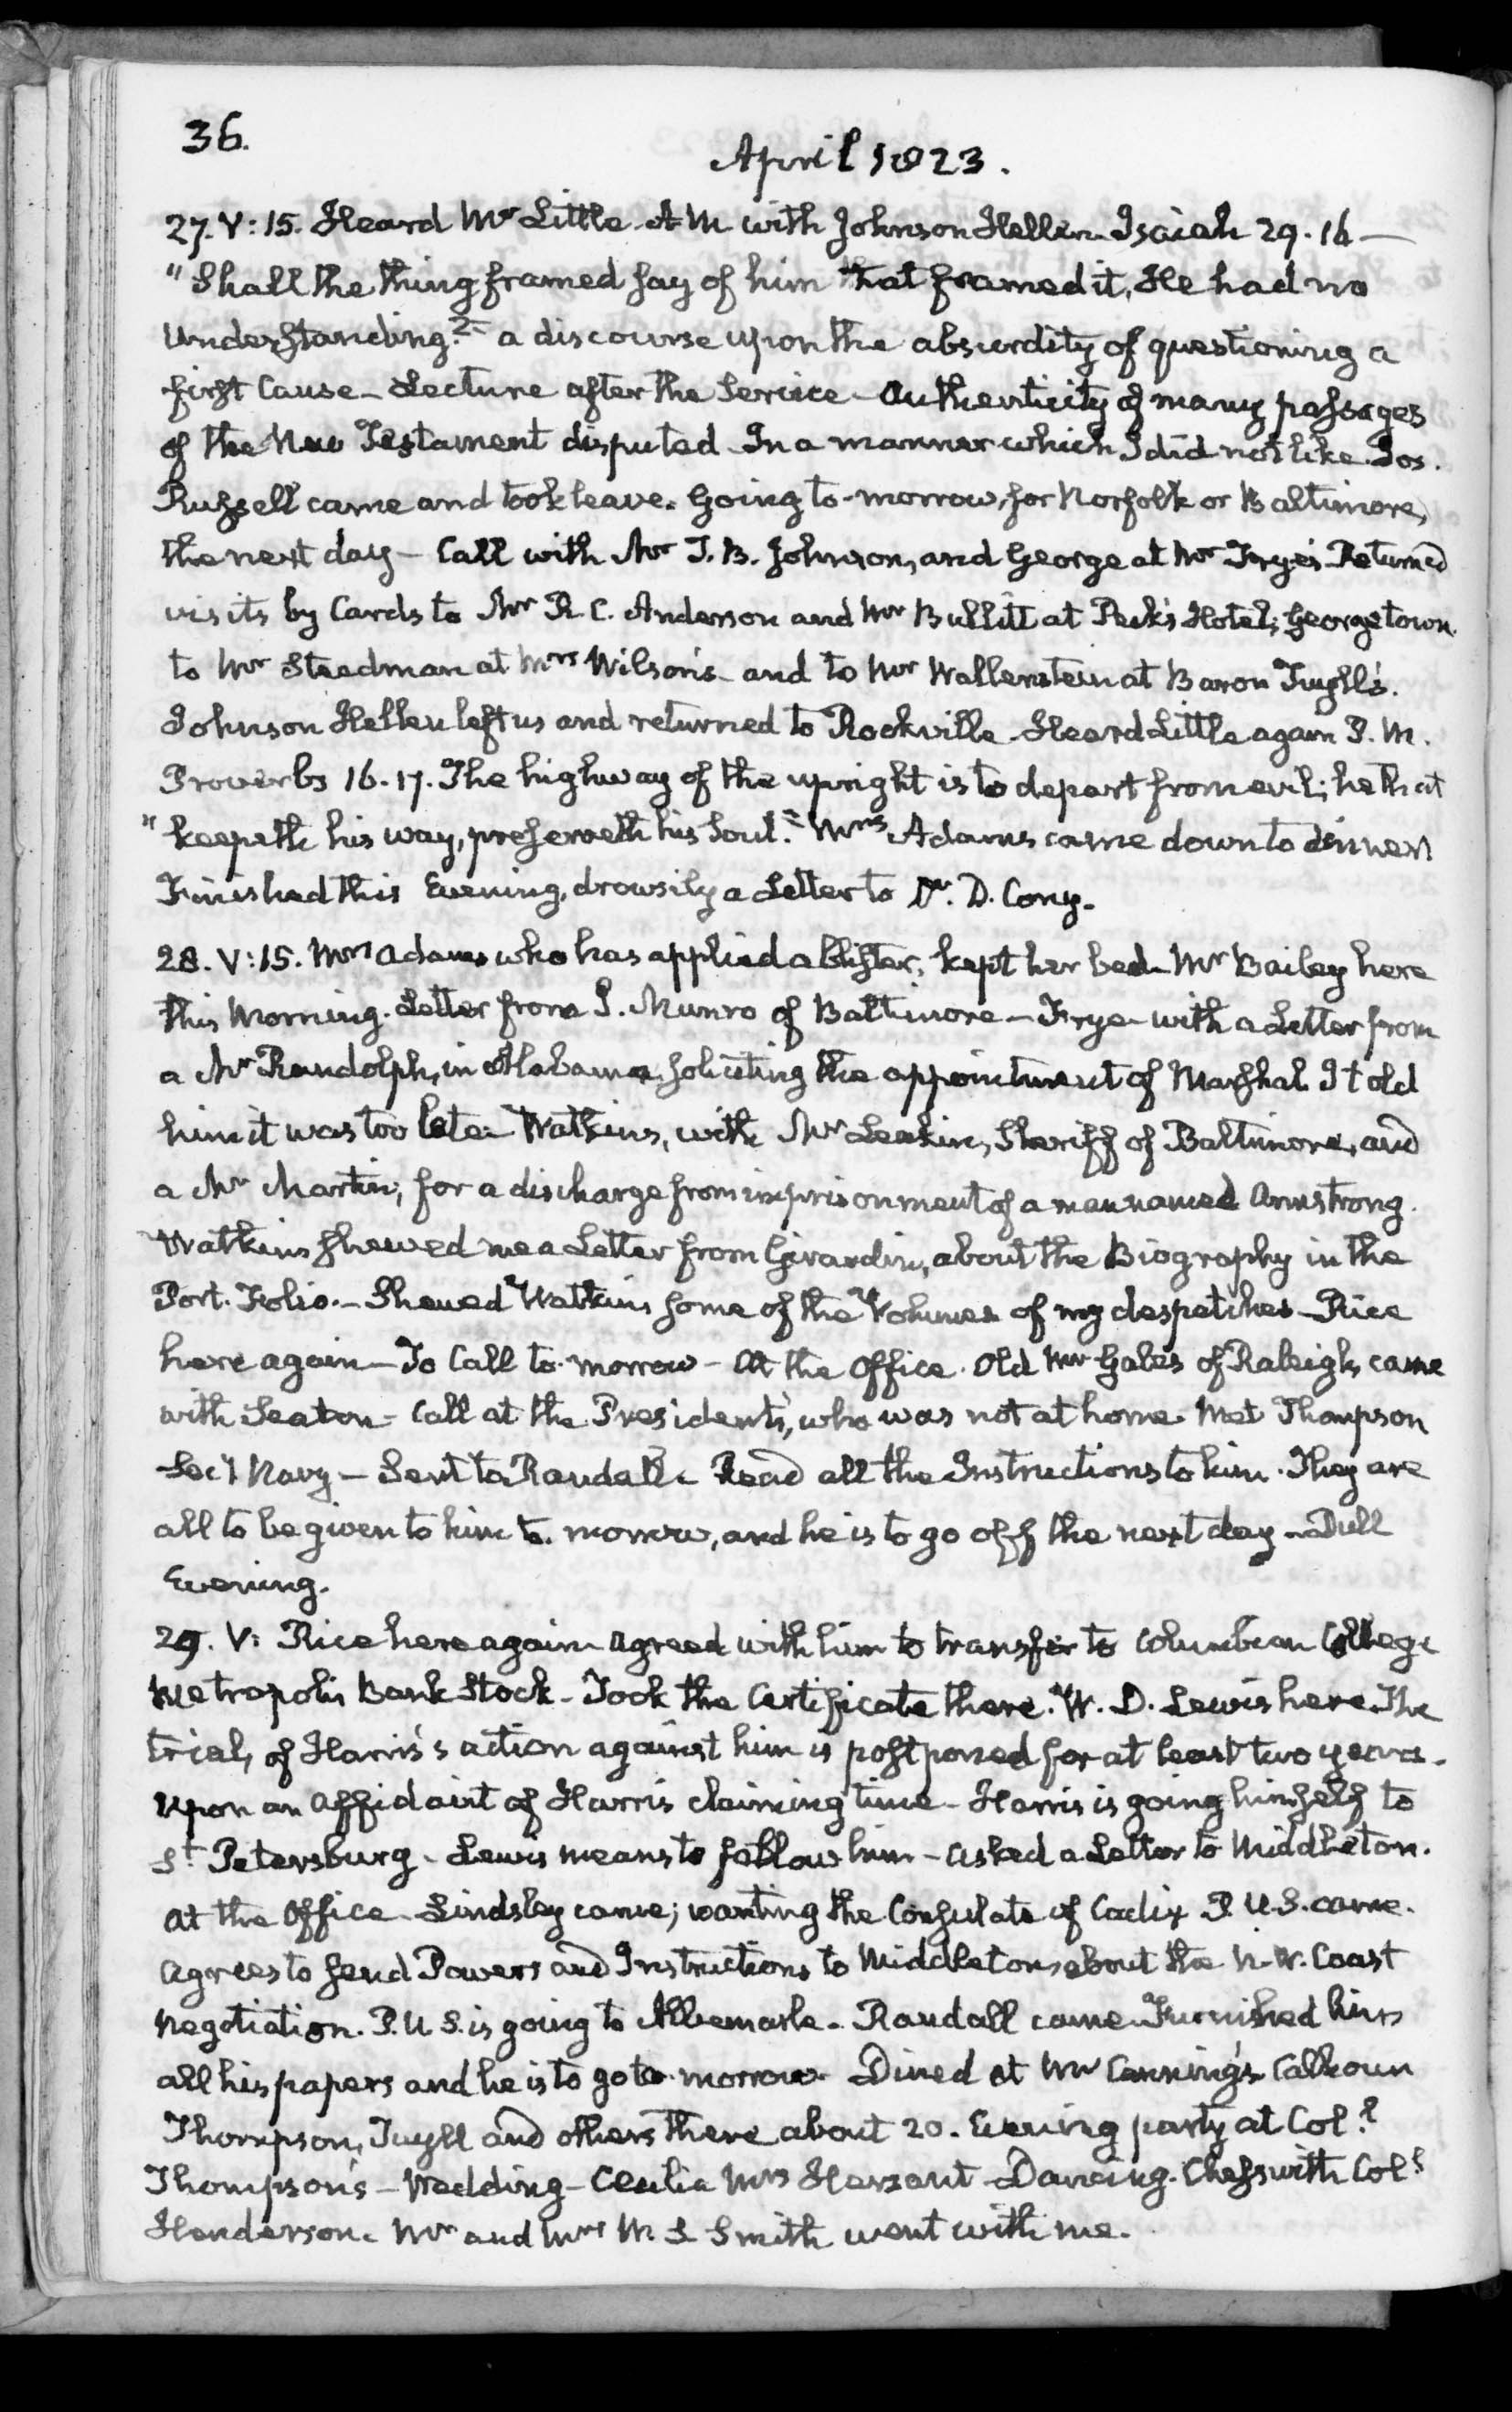 36.
April 1823.
27. V:15. Heard Mr Little A M with Johnson Hellen. Isaiah 29.16 —
"Shall the thing framed say of him that framed it, He had no
Understanding?" a discourse upon the absurdity of questioning a
first Cause – Lecture after the Service – Authenticity of many passages
of the New Testament disputed In a manner which I did not like. Jos.
Russell came and took leave. Going to-morrow, for Norfolk or Baltimore,
the next day – Call with Mr T. B. Johnson, and George at Mr Frye's. Returned
visits by Cards to Mr R C. Anderson and Mr Bullitt at Peck's Hotel, Georgetown.
to Mr Steedman at Mrs Wilson's – and to Mr Wallenstein at Baron Tuyll's.
Johnson Hellen left us and returned to Rockville – Heard Little again P. M.
Proverbs 16.17. The highway of the upright is to depart from evil; he that
"keepeth his way, preserveth his Soul." Mrs Adams came down to dinner
Finished this Evening, drowsily a Letter to Dr. D. Cony.
28. V:15. Mrs Adams who has applied a blister, kept her bed – Mr Bailey here
this Morning. Letter from I. Munro of Baltimore – Frye – with a Letter from
a Mr Randolph, in Alabama, soliciting the appointment of Marshal I told
him it was too late – Watkins, with Mr Leakin, Sheriff of Baltimore, and
a Mr Martin, for a discharge from imprisonment of a man named Armstrong.
Watkins shewed me a Letter from Girardin, about the Biography in the
Port. Folio. – Shewed Watkins some of the Volumes of my despatches – Rice
here again – To Call to-morrow – At the Office. Old Mr Gales of Raleigh, came
with Seaton – Call at the President's, who was not at home. Met Thompson
Secy Navy – Sent to Randall – Read all the Instructions to him. They are
all to be given to him to-morrow, and he is to go off the next day – Dull
Evening.
29. V: Rice here again – Agreed with him to transfer to Columbian College
Metropolis Bank Stock – Took the Certificate there. W. D. Lewis here. The
trial, of Harris's action against him is postponed for at least two years.
Upon an Affidavit of Harris claiming time – Harris is going himself to
St Petersburg – Lewis means to follow him – asked a Letter to Middleton.
At the Office – Lindsley came; wanting the Consulate of Cadiz P. U.S. came.
Agrees to send Powers and Instructions to Middleton about the N.W. Coast
Negotiation. P. U S. is going to Albemarle – Randall came Furnished him
all his papers and he is to go to-morrow – Dined at Mr Canning's. Calhoun
Thompson, Tuyll and others there about 20. Evening party at Coll
Thompson's – Wedding – Cecilia Mrs Harzant – Dancing. Chess with Coll
Henderson. Mr and Mrs W. S Smith went with me.